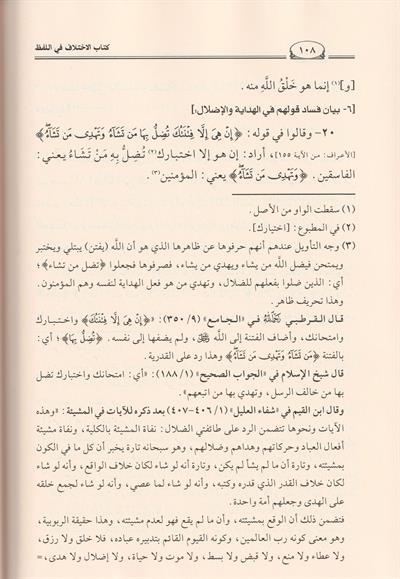 كتاب الاختلاف في اللفظ
١٠٨
[و](١) إنما هو خَلْقُ اللَّهِ منه .
[٦- بيان فساد قولهم في الهداية والإضلال:]
٢٠- وقالوا في قوله : ﴿إِنْ هِيَ إِلَّا فِتْنَتُكَ تُضِلُّ بِهَا مَن تَشَآءُ وَتَهْدِى مَن تَشَآءُ﴾
[الأعراف: من الآية ١٥٥]، أراد: إن هو إلا اختبارك(٢) تُضِلُّ بِهِ مَنْ تَشَاءُ يعني:
الفاسقين . ﴿وَتَهْدِى مَن تَشَآءُ﴾ يعني: المؤمنين(٣).
(١) سقطت الواو من الأصل .
(٢) في المطبوع: [اختبارك].
(٣) وجه التأويل عندهم أنهم حرفوها عن ظاهرها الذي هو أن اللَّه (يفتن) يبتلي ويختبر
ويمتحن فيضل اللَّه من يشاء ويهدي من يشاء، فصرفوها فجعلوا «تضل من تشاء»؛
أي: الذين ضلوا بفعلهم للضلال، وتهدي من هو فعل الهداية لنفسه وهم المؤمنون.
وهذا تحريف ظاهر.
قال القرطبي رَحِمَهُ اللَّهُ في «الجامع» (٩/ ٣٥٠): «﴿إِنْ هِيَ إِلَّا فِتْنَتُكَ﴾ واختبارك
وامتحانك، وأضاف الفتنة إلى اللَّه ﷿، ولم يضفها إلى نفسه. ﴿تُضِلُّ بِهَا﴾؛ أي:
بالفتنة ﴿مَن تَشَآءُ وَتَهْدِى مَن تَشَآءُ﴾ وهذا رد على القدرية.
قال شيخ الإسلام في «الجواب الصحيح» (١/ ١٨٨): «أي: امتحانك واختبارك تضل
بها من خالف الرسل، وتهدي بها من اتبعهم»
وقال ابن القيم في «شفاء العليل» (١/ ٤٠٦-٤٠٧) بعد ذكره للآيات في المشيئة: «وهذه
الآيات ونحوها تتضمن الرد على طائفتي الضلال: نفاة المشيئة بالكلية، ونفاة مشيئة
أفعال العباد وحركاتهم وهداهم وضلالهم، وهو سبحانه تارة يخبر أن كل ما في الكون
بمشيئته، وتارة أن ما لم يشأ لم يكن، وتارة أنه لو شاء لكان خلاف الواقع، وأنه لو شاء
لكان خلاف القدر الذي قدره وكتبه، وأنه لو شاء لما عصي، وأنه لو شاء لجمع خلقه
على الهدى وجعلهم أمة واحدة.
فتضمن ذلك أن الواقع بمشيئته، وأن ما لم يقع فهو لعدم مشيئته، وهذا حقيقة الربوبية،
وهو معنى كونه رب العالمين، وكونه القيوم القائم بتدبيره عباده، فلا خلق ولا رزق،
ولا عطاء ولا منع، ولا قبض ولا بسط، ولا موت ولا حياة، ولا إضلال ولا هدى، =